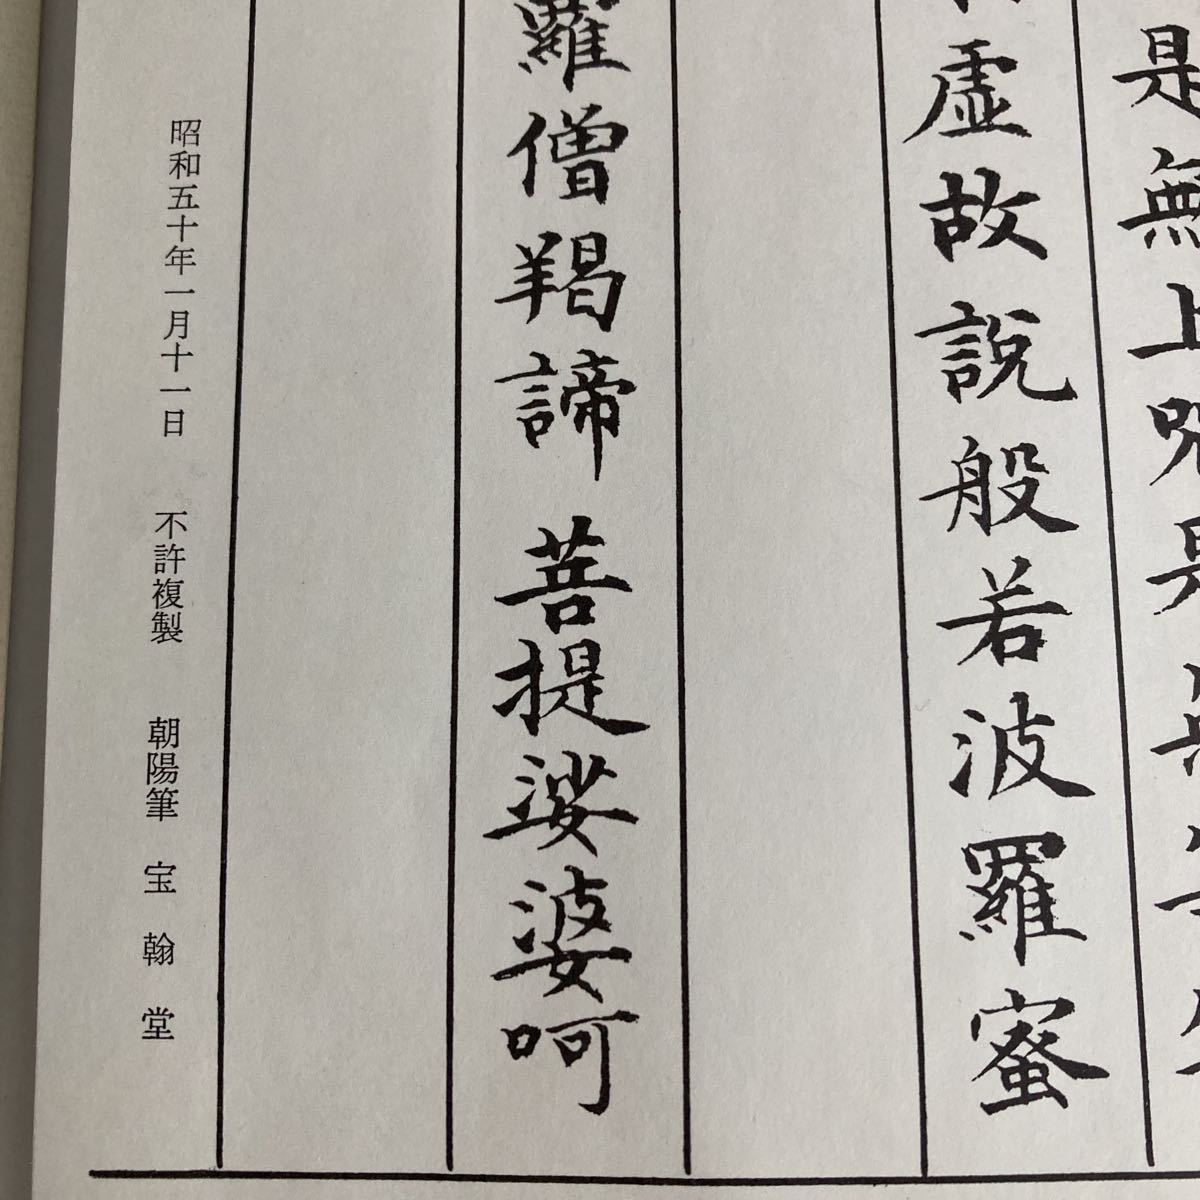 是無上呪是無
虚故説般若波羅蜜
羅僧羯諦 菩提娑婆呵
昭和五十年一月十一日 不許複製 朝陽筆 宝翰堂